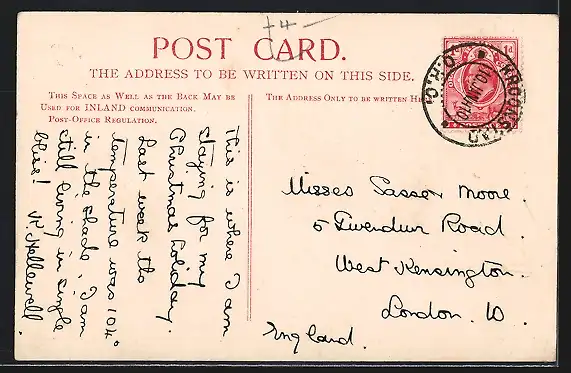 £4 -
POST CARD.
THE ADDRESS TO BE WRITTEN ON THIS SIDE.
THIS SPACE AS WELL AS THE BACK MAY BE
USED FOR INLAND COMMUNICATION.
POST-OFFICE REGULATION.
THE ADDRESS ONLY TO BE WRITTEN HE
1d
KROONSTAD
O.R.C.
This is where I am
staying for my
Christmas holiday.
Last week the
temperature was 104°
in the shade. I am
still living in single
bliss!
Hellewell.
Misses Sasser Moore.
5 Road.
West Kensington.
London. W.
England.